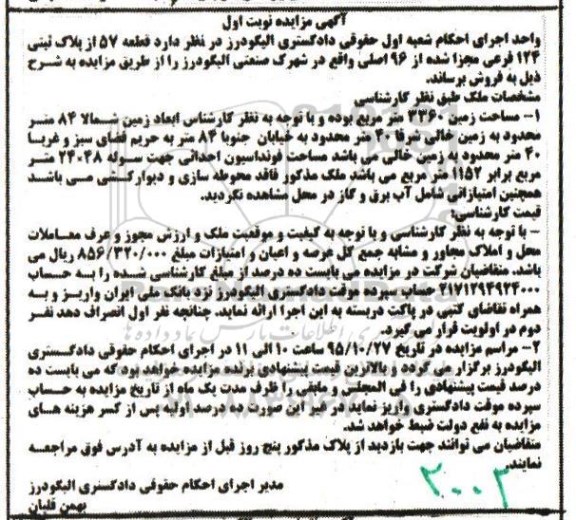 آگهی مزایده نوبت اول
واحد اجرای احکام شعبه اول حقوقی دادگستری الیگودرز در نظر دارد قطعه ۵۷ از پلاک ثبتی
۱۲۴ فرعی مجزا شده از ۹۶ اصلی واقع در شهرک صنعتی الیگودرز را از طریق مزایده به شرح
ذیل به فروش برساند.
مشخصات ملک طبق نظر کارشناسی
۱- مساحت زمین ۳۳۶۰ متر مربع بوده و با توجه به نظر کارشناس ابعاد زمین شمالا ۸۴ متر
محدود به زمین خالی شرقا ۴۰ متر محدود به خیابان جنوبا ۸۴ متر به حریم فضای سبز و غربا
۴۰ متر محدود به زمین خالی می باشد مساحت فونداسیون احداثی جهت سوله ۴۸*۲۴ متر
مربع برابر ۱۱۵۲ متر مربع می باشد ملک مذکور فاقد محوطه سازی و دیوارکشی می باشد
همچنین امتیازاتی شامل آب برق و گاز در محل مشاهده نگردید.
قیمت کارشناسی:
- با توجه به نظر کارشناسی و با توجه به کیفیت و موقعیت ملک و ارزش مجوز و عرف معاملات
محل و املاک مجاور و مشابه جمع کل عرصه و اعیان و امتیازات مبلغ ۸۵۶/۳۲۰/۰۰۰ ریال می
باشد. متقاضیان شرکت در مزایده می بایست ده درصد از مبلغ کارشناسی شده را به حساب
۲۱۷۱۲۹۴۹۲۴۰۰۰ حساب سپرده موقت دادگستری الیگودرز نزد بانک ملی ایران واریز و به
همراه تقاضای کتبی در پاکت دربسته به این اجرا ارائه نماید. چنانچه نفر اول انصراف دهد نفر
دوم در اولویت قرار می گیرد.
۲- مراسم مزایده در تاریخ ۹۵/۱۰/۲۷ ساعت ۱۰ الی ۱۱ در اجرای احکام حقوقی دادگستری
الیگودرز برگزار می گردد و بالاترین قیمت پیشنهادی برنده مزایده خواهد بود که می بایست ده
درصد قیمت پیشنهادی را فی المجلس و مابقی را ظرف مدت یک ماه از تاریخ مزایده به حساب
سپرده موقت دادگستری واریز نماید در غیر این صورت ده درصد اولیه پس از کسر هزینه های
مزایده به نفع دولت ضبط خواهد شد.
متقاضیان می توانند جهت بازدید از پلاک مذکور پنج روز قبل از مزایده به آدرس فوق مراجعه
نمایند.
۲۰۰۲
مدیر اجرای احکام حقوقی دادگستری الیگودرز
بهمن قلیان